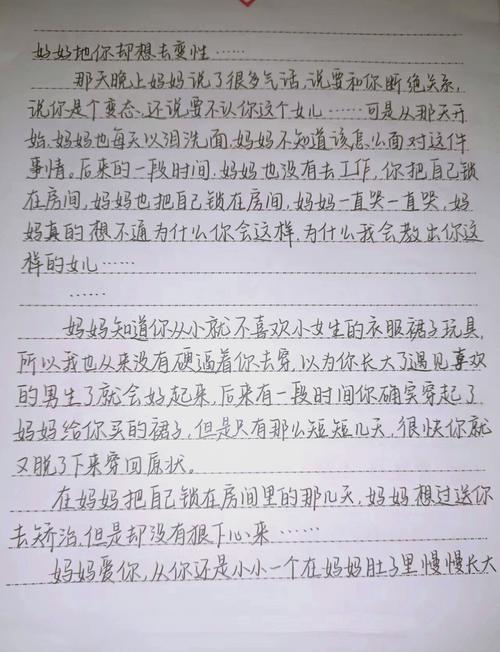 好好地你却想去变性……
那天晚上妈妈说了很多气话，说要和你断绝关系，
说你是个变态，还说要不认你这个女儿……可是从那天开
始，妈妈也每天以泪洗面，妈妈不知道该怎么面对这件
事情。后来的一段时间，妈妈也没有去工作，你把自己锁
在房间，妈妈也把自己锁在房间，妈妈一直哭一直哭，妈
妈真的想不通为什么你会这样，为什么我会教出你这
样的女儿……
……
妈妈知道你从小就不喜欢小女生的衣服裙子玩具，
所以我也从来没有硬逼着你去穿，以为你长大了遇见喜欢
的男生了就会好起来，后来有一段时间你确实穿起了
妈妈给你买的裙子，但是只有那么短短几天，很快你就
又脱了下来穿回原状。
在妈妈把自己锁在房间里的那几天，妈妈想过送你
去矫治，但是却没有狠下心来……
妈妈爱你，从你还是小小一个在妈妈肚子里慢慢长大